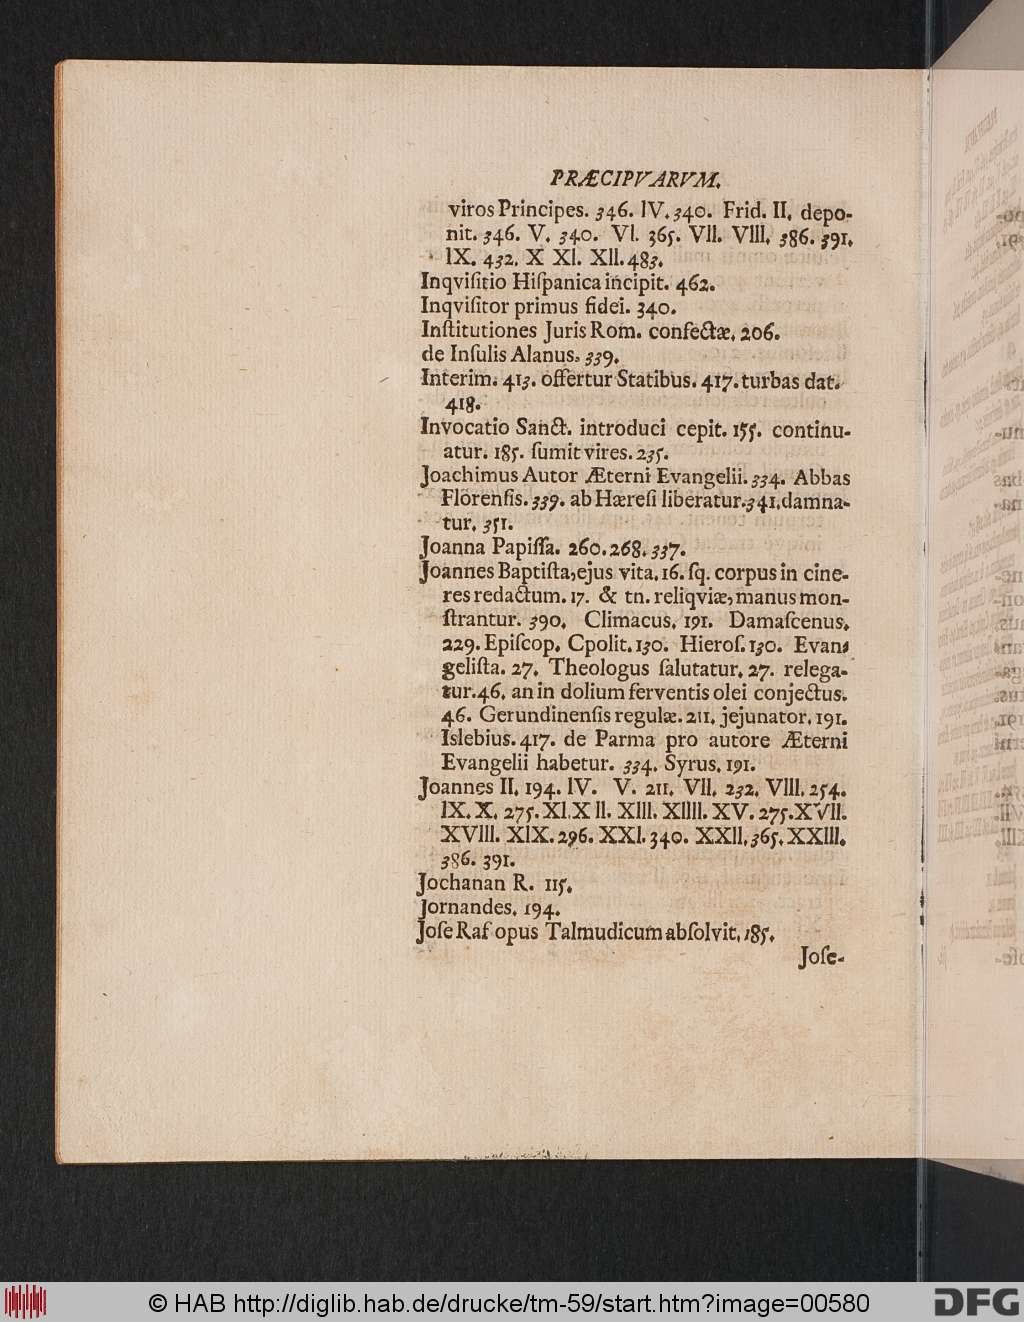 PRÆCIPVARVM.
viros Principes. 346. IV. 340. Frid. II, depo-
nit. 346. V. 340. VI. 365. VII. VIII, 386. 391,
IX. 432. X XI. XII. 483.
Inqviſitio Hiſpanica incipit. 462.
Inqviſitor primus fidei. 340.
Inſtitutiones Juris Rom. confectæ, 206.
de Inſulis Alanus. 339.
Interim. 413. offertur Statibus. 417. turbas dat.
418.
Invocatio Sanct. introduci cepit. 155. continu-
atur. 185. ſumit vires. 235.
Joachimus Autor Æterni Evangelii. 334. Abbas
Florenſis. 339. ab Hæreſi liberatur. 341. damna-
tur, 351.
Joanna Papiſſa. 260. 268. 337.
Joannes Baptiſta, ejus vita, 16. ſq. corpus in cine-
res redactum. 17. & tn. reliqviæ, manus mon-
ſtrantur. 390, Climacus, 191. Damaſcenus,
229. Epiſcop. Cpolit. 130. Hieroſ. 130. Evan-
geliſta. 27, Theologus ſalutatur, 27. relega-
tur. 46, an in dolium ferventis olei conjectus.
46. Gerundinenſis regulæ. 211, jejunator, 191.
Islebius. 417. de Parma pro autore Æterni
Evangelii habetur. 334, Syrus, 191.
Joannes II, 194. IV. V. 211, VII, 232, VIII, 254.
IX. X, 275. XI. XII. XIII. XIIII. XV. 275. XVII.
XVIII. XIX. 296. XXI. 340. XXII, 365, XXIII,
386. 391.
Jochanan R. 115,
Jornandes, 194.
Joſe Raf opus Talmudicum abſolvit, 185,
Joſe-
© HAB http://diglib.hab.de/drucke/tm-59/start.htm?image=00580
DFG